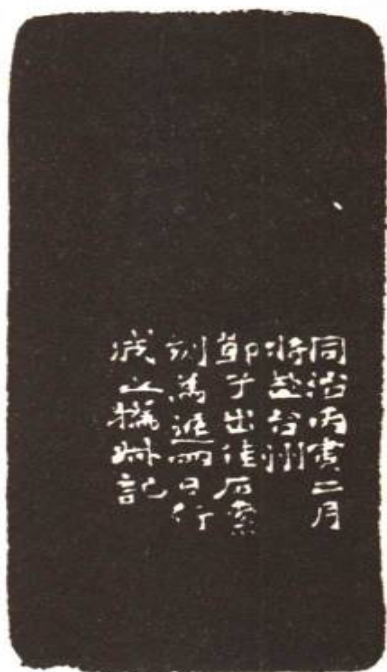 同治丙寅二月
將台州
鄭子出佳石索
刻為遲四日行
成之撝叔記